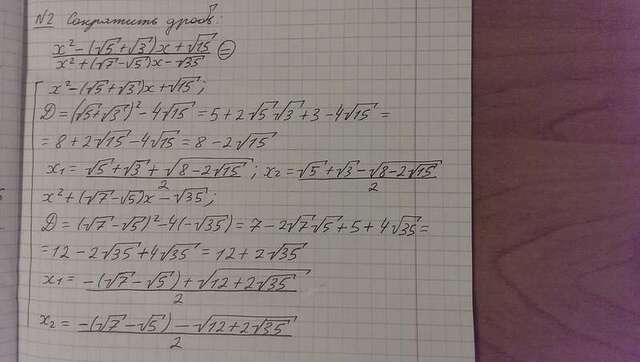 N2 Сократить дробь:
x² - (√5 + √3)x + √15
x² + (√7 - √5)x - √35 =
x² - (√5 + √3)x + √15;
D = (√5 + √3)² - 4√15 = 5 + 2√5·√3 + 3 - 4√15 =
= 8 + 2√15 - 4√15 = 8 - 2√15
x₁ = (√5 + √3 + √(8 - 2√15))/2; x₂ = (√5 + √3 - √(8 - 2√15))/2
x² + (√7 - √5)x - √35;
D = (√7 - √5)² - 4(-√35) = 7 - 2√7√5 + 5 + 4√35 =
= 12 - 2√35 + 4√35 = 12 + 2√35
x₁ = (-(√7 - √5) + √(12 + 2√35))/2
x₂ = (-(√7 - √5) - √(12 + 2√35))/2